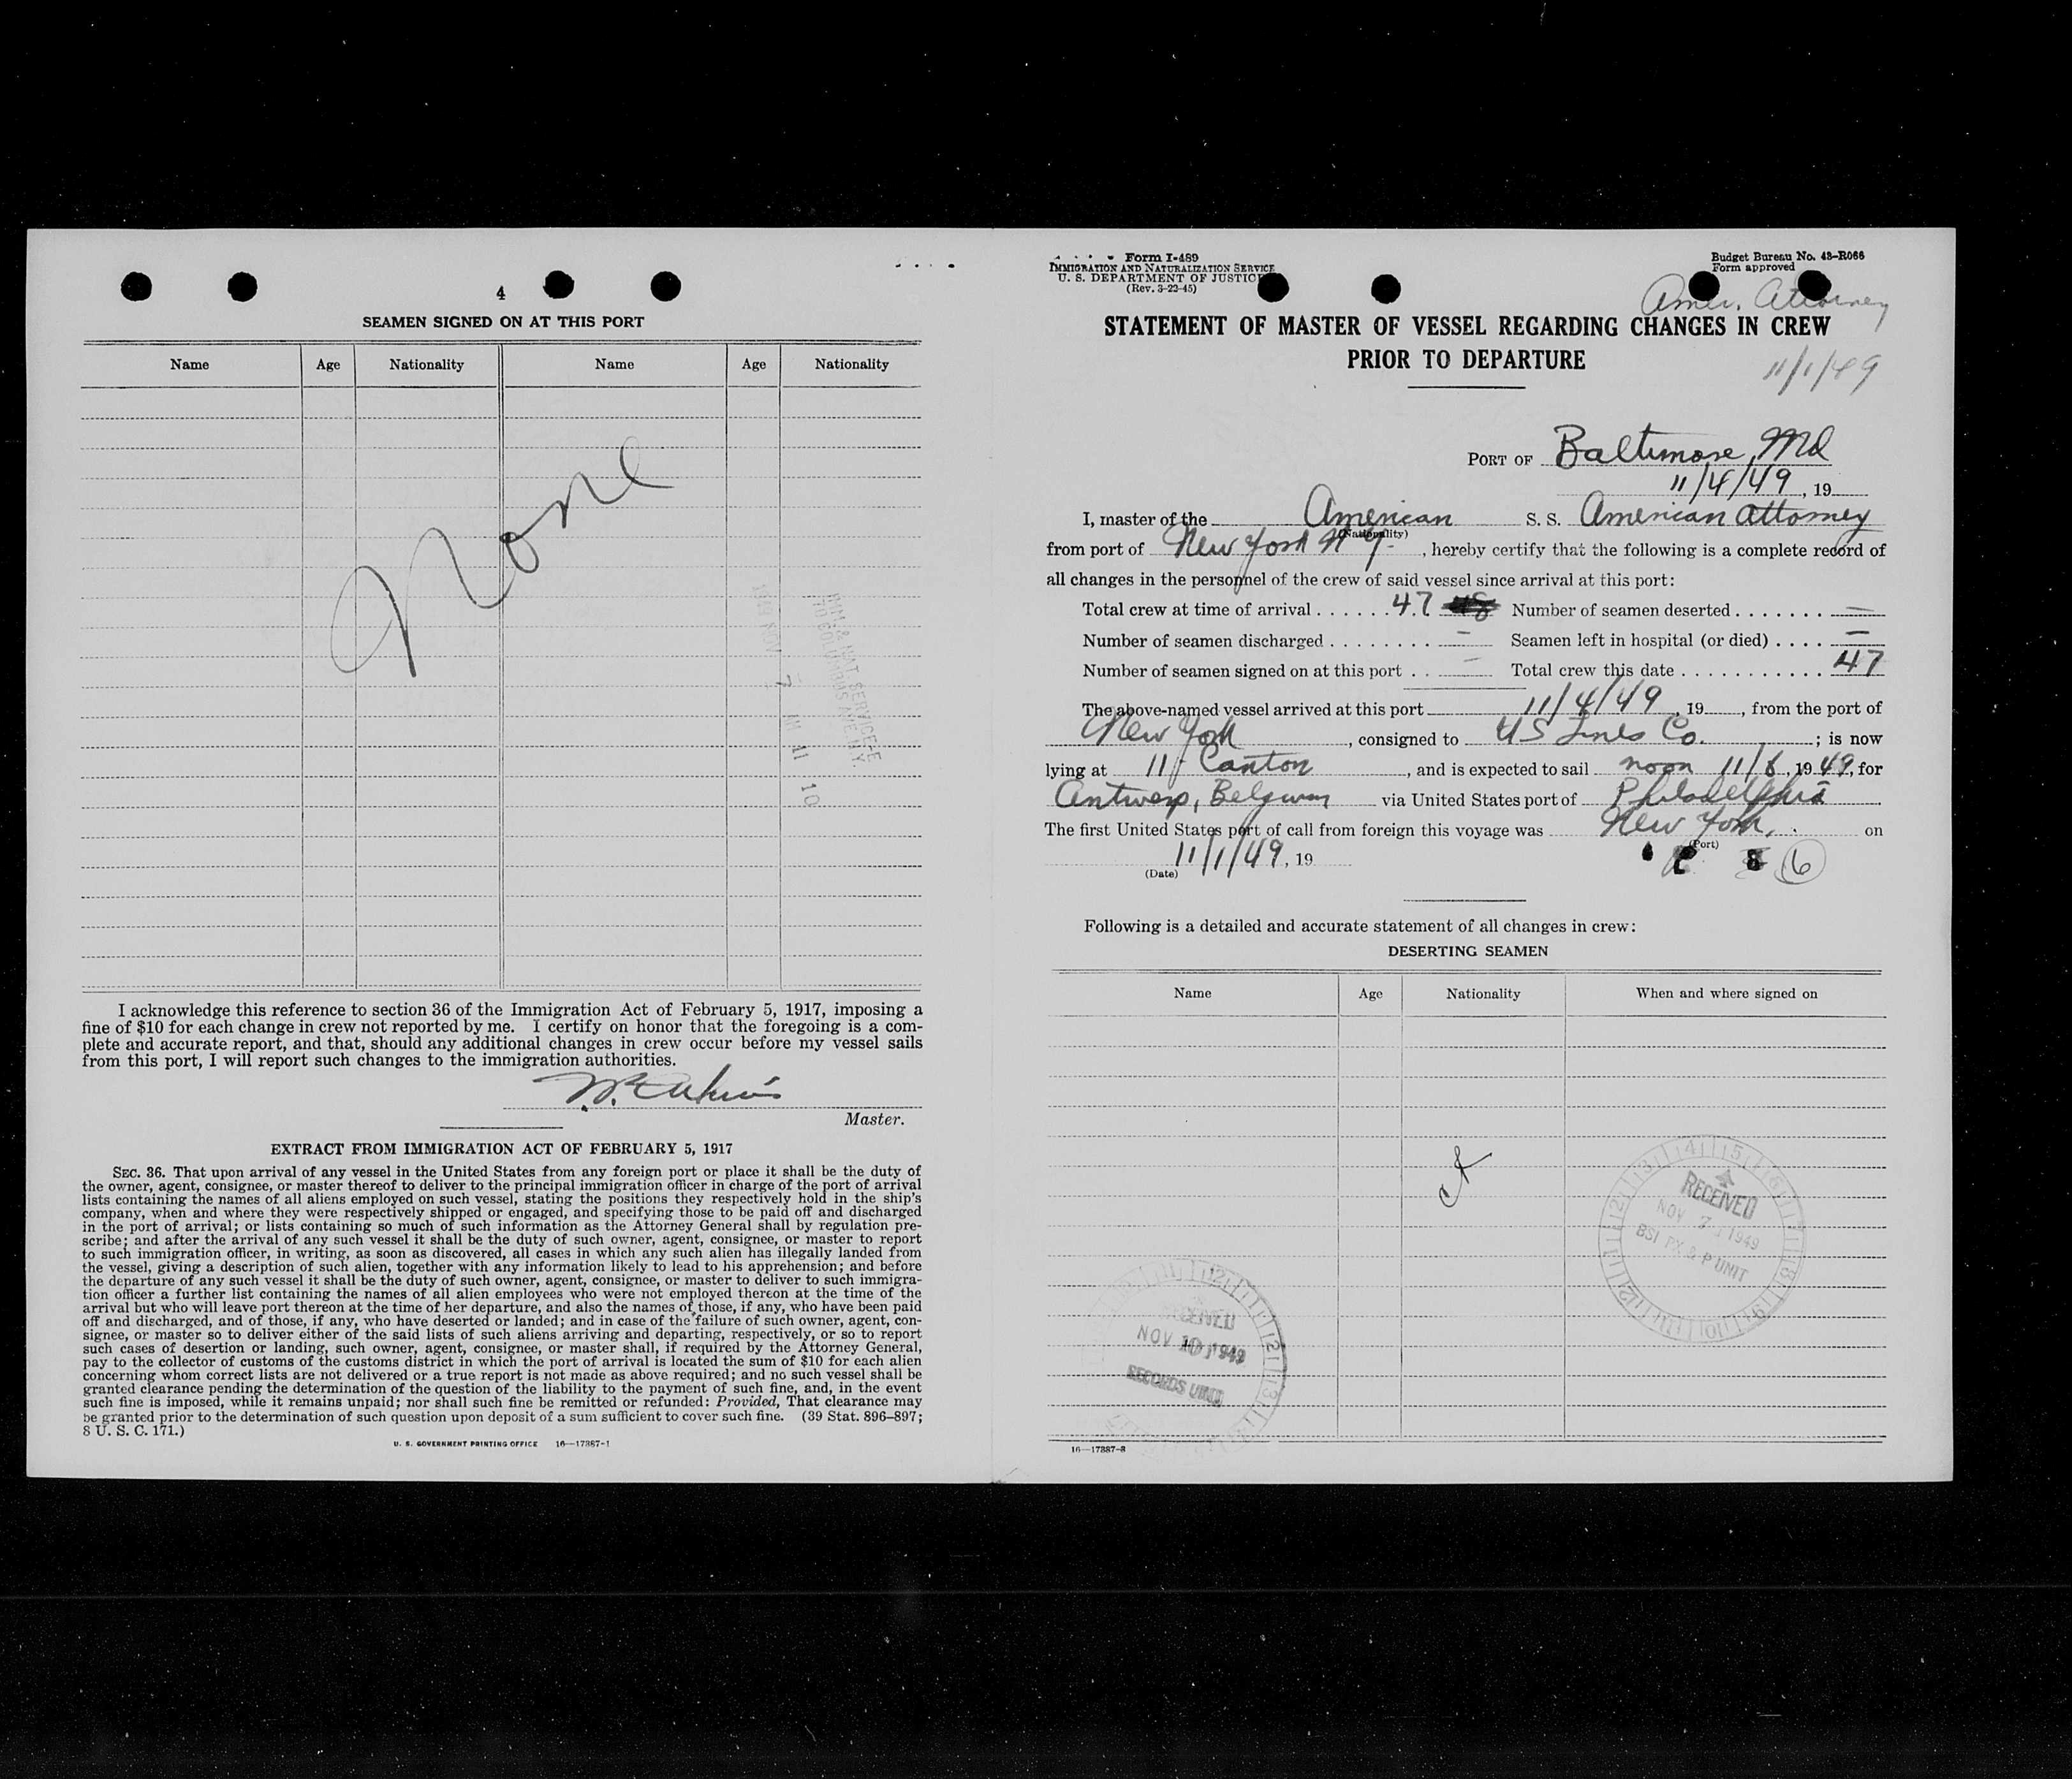 4
SEAMEN SIGNED ON AT THIS PORT
Name Age Nationality Name Age Nationality
None
IMM. & NAT. SERVICE-E
70 COLUMBUS AVE. N.Y.
1949 NOV 7 AM 11 10
I acknowledge this reference to section 36 of the Immigration Act of February 5, 1917, imposing a
fine of $10 for each change in crew not reported by me. I certify on honor that the foregoing is a com-
plete and accurate report, and that, should any additional changes in crew occur before my vessel sails
from this port, I will report such changes to the immigration authorities.
Master.
EXTRACT FROM IMMIGRATION ACT OF FEBRUARY 5, 1917
SEC. 36. That upon arrival of any vessel in the United States from any foreign port or place it shall be the duty of
the owner, agent, consignee, or master thereof to deliver to the principal immigration officer in charge of the port of arrival
lists containing the names of all aliens employed on such vessel, stating the positions they respectively hold in the ship's
company, when and where they were respectively shipped or engaged, and specifying those to be paid off and discharged
in the port of arrival; or lists containing so much of such information as the Attorney General shall by regulation pre-
scribe; and after the arrival of any such vessel it shall be the duty of such owner, agent, consignee, or master to report
to such immigration officer, in writing, as soon as discovered, all cases in which any such alien has illegally landed from
the vessel, giving a description of such alien, together with any information likely to lead to his apprehension; and before
the departure of any such vessel it shall be the duty of such owner, agent, consignee, or master to deliver to such immigra-
tion officer a further list containing the names of all alien employees who were not employed thereon at the time of the
arrival but who will leave port thereon at the time of her departure, and also the names of those, if any, who have been paid
off and discharged, and of those, if any, who have deserted or landed; and in case of the failure of such owner, agent, con-
signee, or master so to deliver either of the said lists of such aliens arriving and departing, respectively, or so to report
such cases of desertion or landing, such owner, agent, consignee, or master shall, if required by the Attorney General,
pay to the collector of customs of the customs district in which the port of arrival is located the sum of $10 for each alien
concerning whom correct lists are not delivered or a true report is not made as above required; and no such vessel shall be
granted clearance pending the determination of the question of the liability to the payment of such fine, and, in the event
such fine is imposed, while it remains unpaid; nor shall such fine be remitted or refunded: Provided, That clearance may
be granted prior to the determination of such question upon deposit of a sum sufficient to cover such fine. (39 Stat. 896-897;
8 U. S. C. 171.)
U. S. GOVERNMENT PRINTING OFFICE 16—17387-1
Form I-489
IMMIGRATION AND NATURALIZATION SERVICE
U. S. DEPARTMENT OF JUSTICE
(Rev. 3-22-45)
Budget Bureau No. 43-R066
Form approved
Amer. Attorney
STATEMENT OF MASTER OF VESSEL REGARDING CHANGES IN CREW
PRIOR TO DEPARTURE
11/1/49
PORT OF Baltimore, Md
11/4/49, 19
I, master of the American S. S. American Attorney
(Nationality)
from port of New York N Y, hereby certify that the following is a complete record of
all changes in the personnel of the crew of said vessel since arrival at this port:
Total crew at time of arrival 47 Number of seamen deserted —
Number of seamen discharged — Seamen left in hospital (or died) —
Number of seamen signed on at this port — Total crew this date 47
The above-named vessel arrived at this port 11/4/49, 19, from the port of
New York, consigned to US Lines Co.; is now
lying at 11 Canton, and is expected to sail noon 11/6, 1949, for
Antwerp, Belgium via United States port of Philadelphia
The first United States port of call from foreign this voyage was New York, on
(Port)
11/1/49, 19
(Date)
6
Following is a detailed and accurate statement of all changes in crew:
DESERTING SEAMEN
Name Age Nationality When and where signed on
RECEIVED
NOV 7 1949
BSI FX & P UNIT
RECEIVED
NOV 10 1949
RECORDS UNIT
16—17387-3